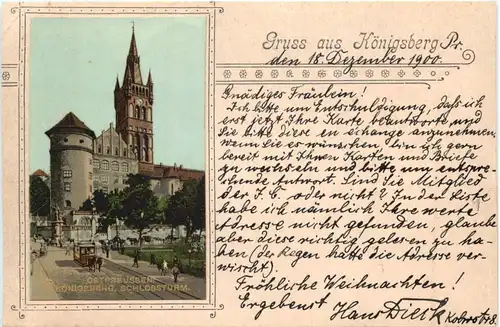 Gruss aus Königsberg Pr.
den 18. Dezember 1900.
Gnädiges Fräulein!
Ich bitte um Entschuldigung, dass ich
erst jetzt Ihre Karte beantworte und
Sie bitte diese en échange anzunehmen,
wenn Sie es wünschen, bin ich gern
bereit mit Ihnen Karten und Briefe
zu wechseln und bitte um entspre-
chende Antwort. Sind Sie Mitglied
den I. C. oder nicht? In der Liste
habe ich nämlich Ihre werte
Adresse nicht gefunden, glaube
aber diese richtig gelesen zu ha-
ben (der Regen hatte die Adresse ver-
wischt).
Fröhliche Weihnachten!
Ergebenst Hans
OSTPREUSSEN
KÖNIGSBERG, SCHLOSSTURM.